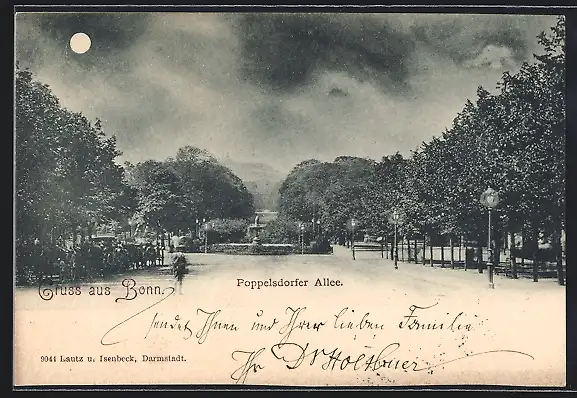 Poppelsdorfer Allee.
Gruss aus Bonn.
sendet Ihnen und Ihrer lieben Familie
9044 Lautz u. Isenbeck, Darmstadt.
Ihr Dr